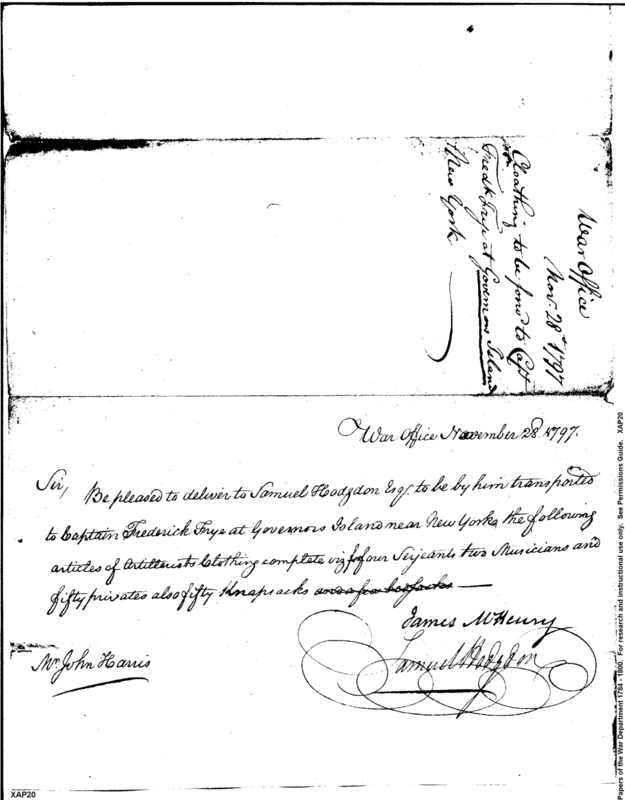 War Office
Nov. 28th 1797
Cloathing to be forwd to Capt
Fredk Frye at Governors Island
New York
War Office November 28 1797.
Sir,
Be pleased to deliver to Samuel Hodgdon Esqr. to be by him transported
to Captain Frederick Frye at Governors Island near New York, the following
articles of Artillerists Clothing complete viz for four Serjeants two Musicians and
fifty privates also fifty Knapsacks and a few
James McHenry
Samuel Hodgdon
Mr. John Harris
XAP20
Papers of the War Department 1784 - 1800. For research and instructional use only. See Permissions Guide. XAP20